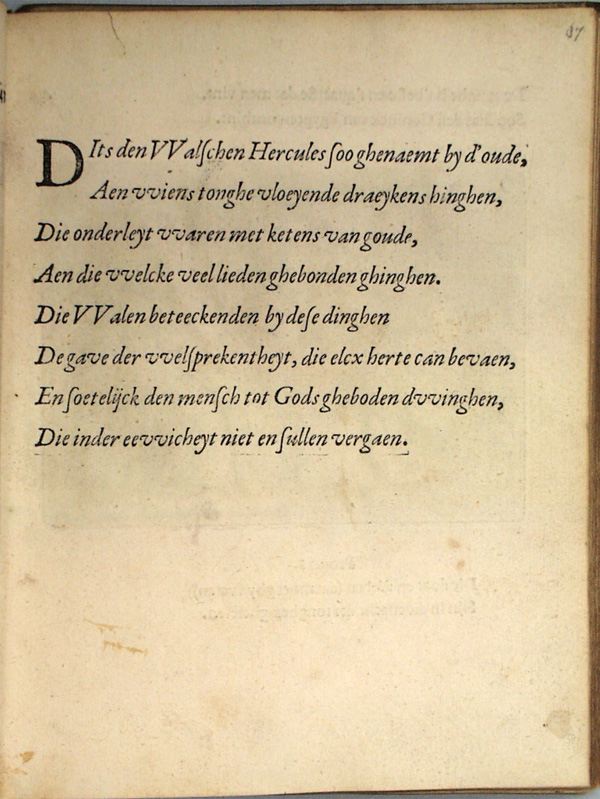 DIts den VValſchen Hercules ſoo ghenaemt by d'oude,
Aen vviens tonghe vloeyende draeykens hinghen,
Die onderleyt vvaren met ketens van goude,
Aen die vvelcke veel lieden ghebonden ghinghen.
Die VValen beteeckenden by deſe dinghen
De gave der vvelſprekentheyt, die elcx herte can bevaen,
En ſoetelijck den menſch tot Gods gheboden dvvinghen,
Die inder eevvicheyt niet en ſullen vergaen.